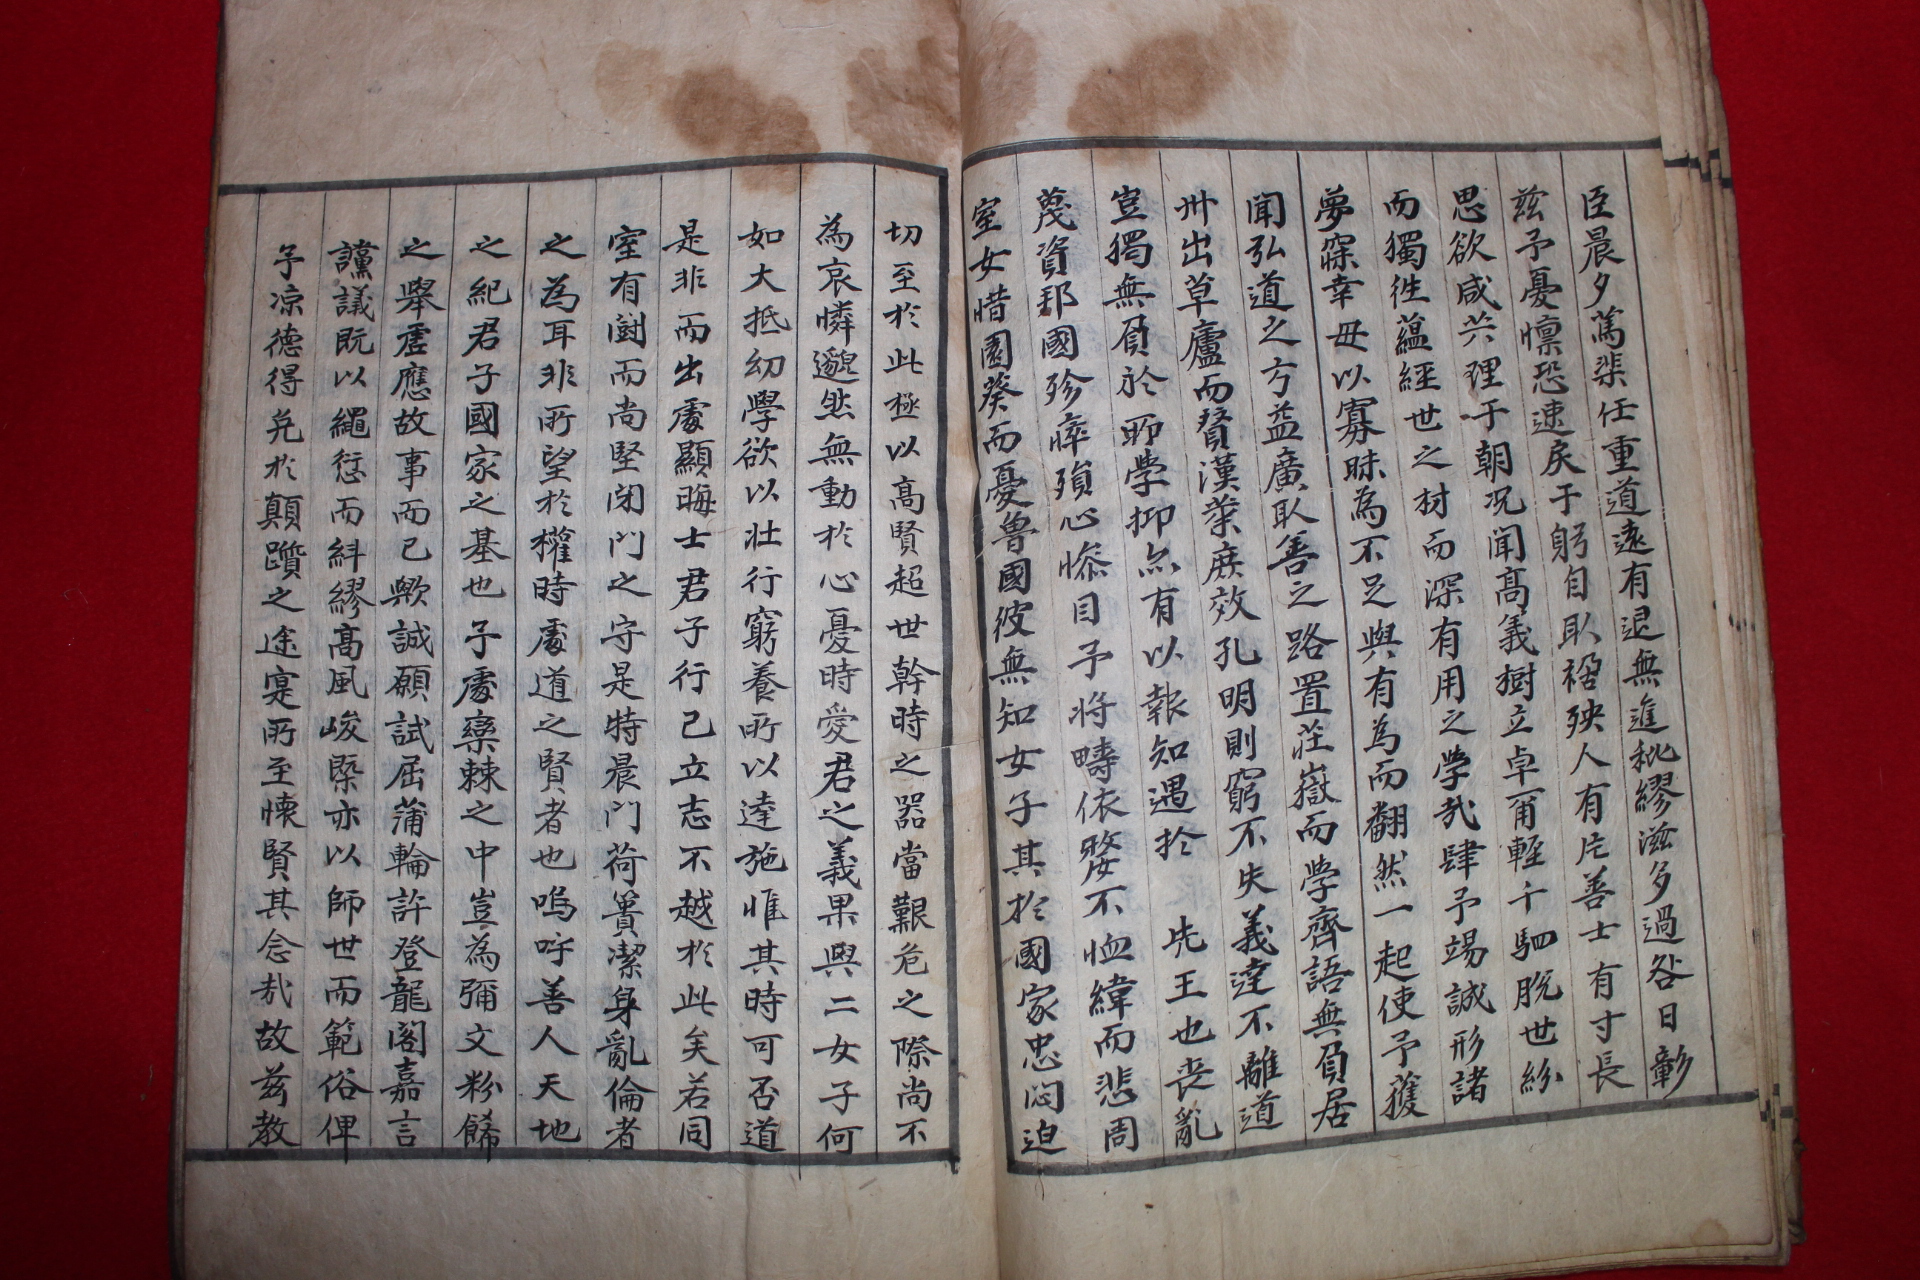 臣晨夕篤棐任重道遠有退無進秕繆滋多過咎日彰
玆予憂懍恐速戾于躬自取禍殃人有片善士有寸長
思欲咸共理于朝况聞高義樹立卓甫輕千駟脫世紛
而獨徃蘊經世之材而深有用之學㢤肆予竭誠形諸
夢寐幸毋以寡昧為不足與有為而翻然一起使予獲
聞弘道之方益廣取善之路置莊嶽而學齊語無負居
卅出草廬而賛漢業庶效孔明則窮不失義達不離道
豈獨無負於所學抑亦有以報知遇扵 先王也丧亂
蔑資邦國殄瘁殞心慘目予将疇依嫠不恤緯而悲周
室女惜園葵而憂魯國彼無知女子其扵國家忠悶迫
切至於此極以高賢超世幹時之器當艱危之際尚不
為哀憐邈然無動於心憂時愛君之義果與二女子何
如大抵幼學欲以壮行窮養所以達施惟其時可否道
是非而出處顯晦士君子行己立志不越於此矣若同
室有鬪而尚堅閉門之守是特晨門荷蕢潔身亂倫者
之為耳非所望於權時處道之賢者也嗚呼善人天地
之紀君子國家之基也予處欒棘之中豈為彌文粉餙
之舉虛應故事而已歟誠願試屈蒲輪許登龍閣嘉言
讜議既以繩愆而糾繆高風峻槩亦以師世而範俗俾
予凉德得免於顛躓之途寔所至懷賢其念㢤故兹教